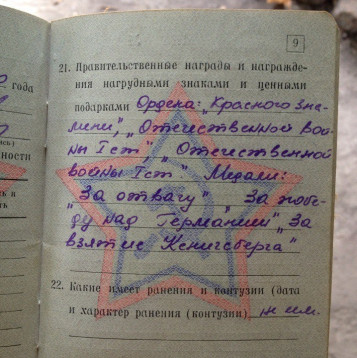 9
21. Правительственные награды и награжде-
ния нагрудными знаками и ценными
подарками Ордена: „Красного зна-
мени", „Отечественной вой
ны I ст", „Отечественной
войны I ст" Медали:
„За отвагу" „За побе-
ду над Германией" „За
взятие Кенигсберга"
22. Какие имеет ранения и контузии (дата
и характер ранения (контузии)
года
ности